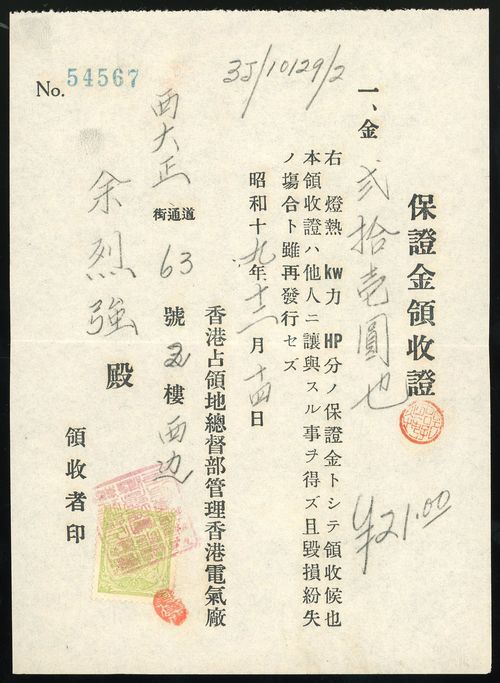 No. 54567
3J/10129/2
保證金領收證
一、金 弍拾壱圓也
¥21.00
右 燈熱 kw 力 HP 分ノ保證金トシテ領收候也
本領收證ハ他人ニ讓與スル事ヲ得ズ且毀損紛失
ノ塲合ト雖再發行セズ
昭和十九年十二月十四日
香港占領地總督部管理香港電氣廠
西大正 街通道 63 號 五 樓 西边
余烈強 殿
領收者印